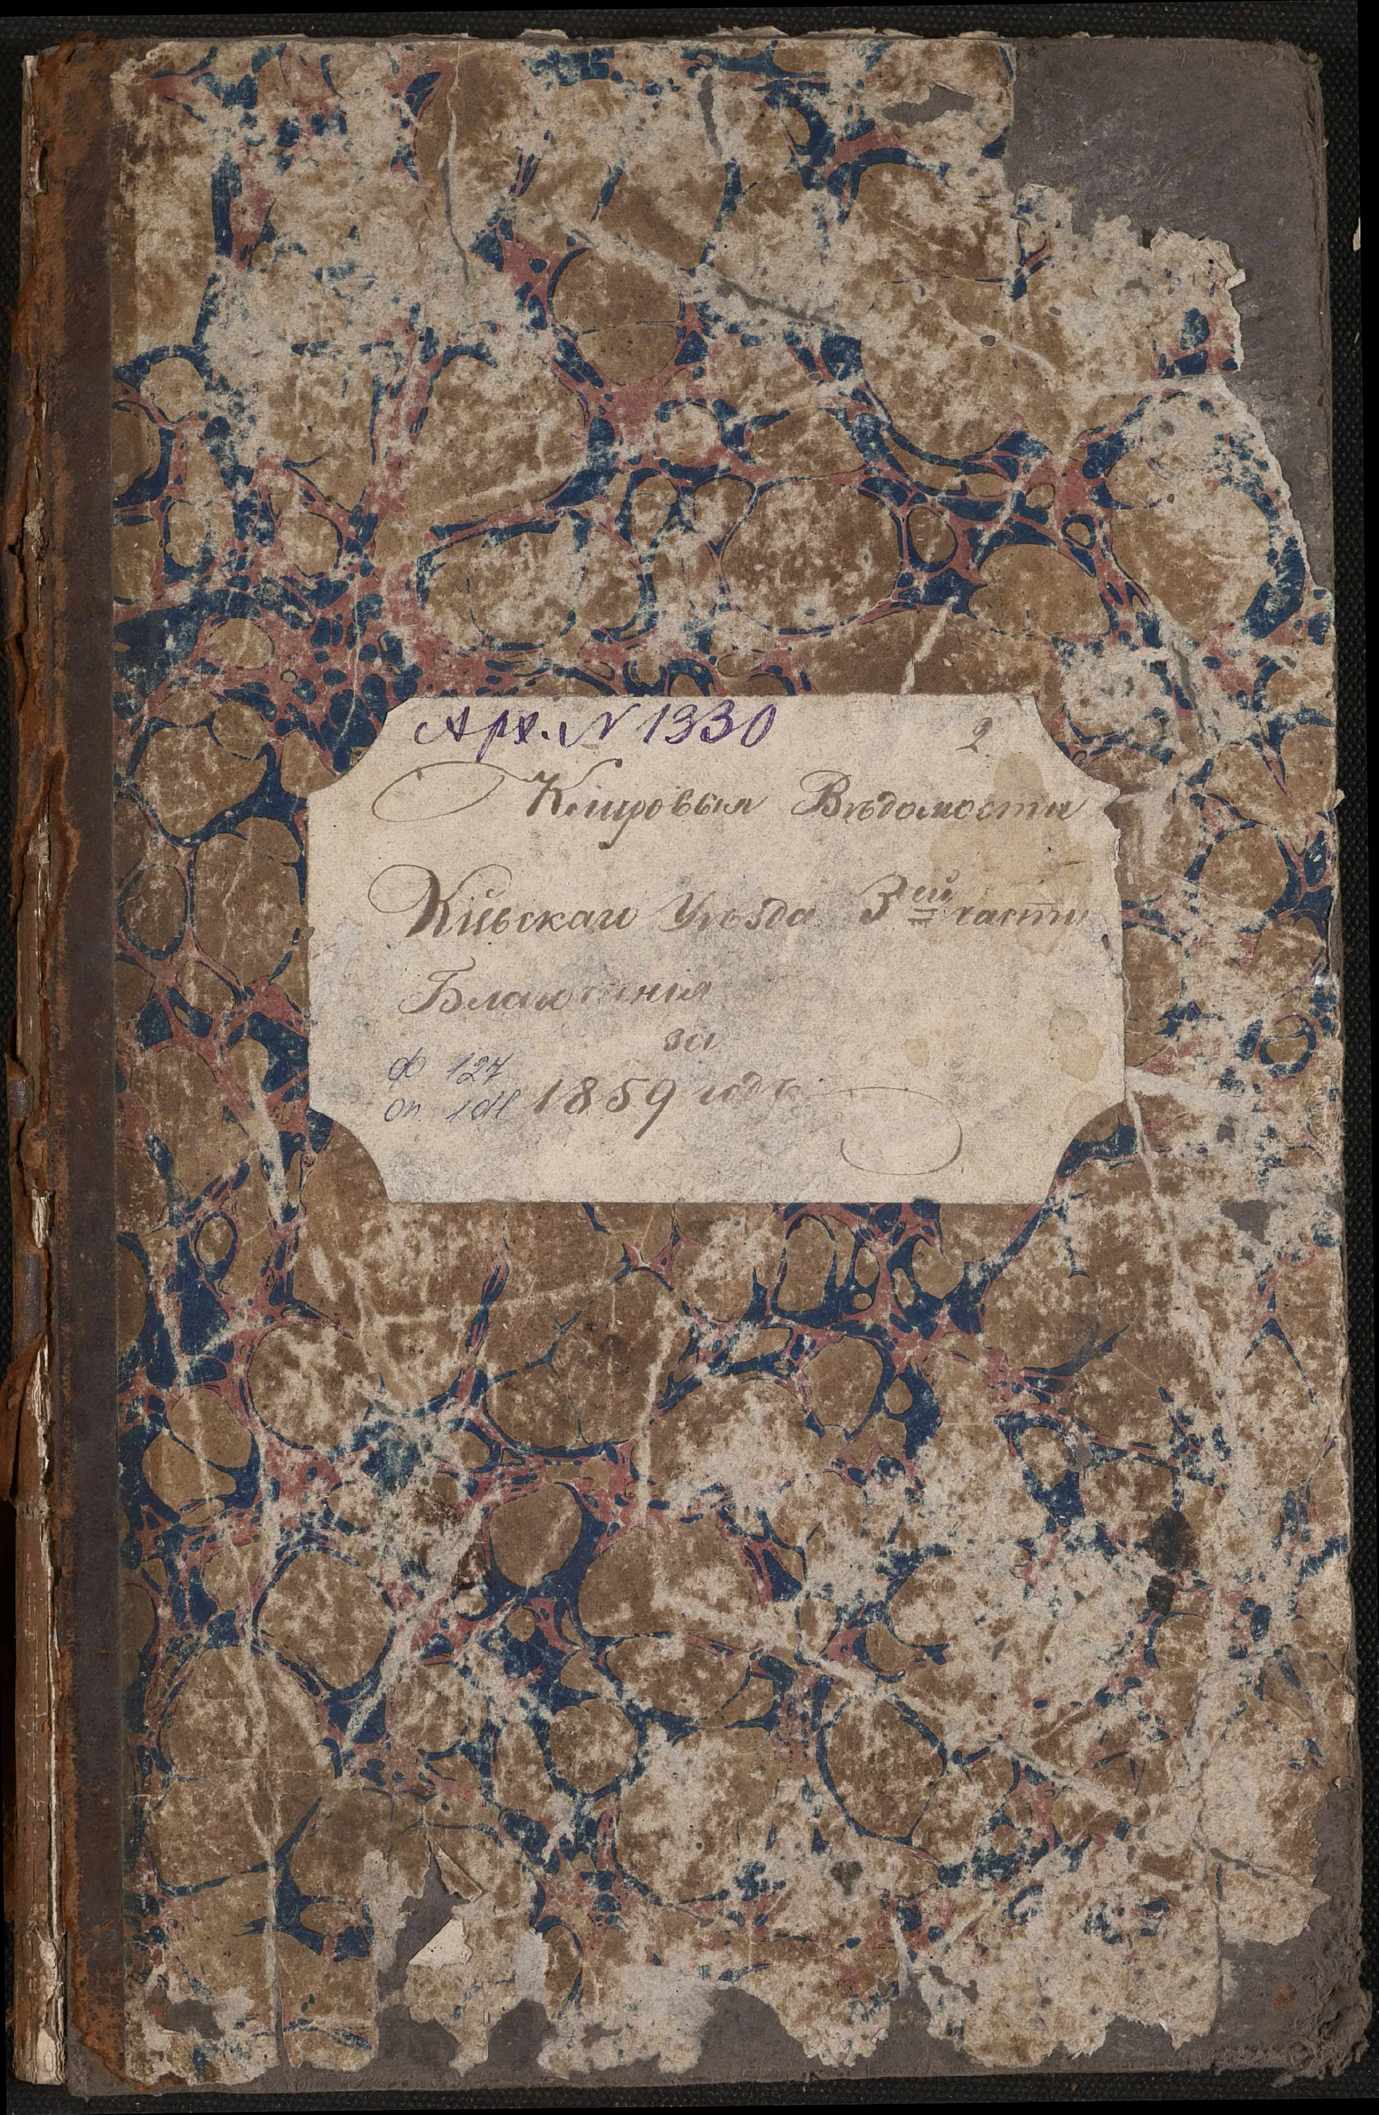 Арх. N 1330
2
Клировыя Вѣдомости
Кіевскаго Уѣзда 3ей части
Благочинія
за
ф 127
1859 годъ
оп.